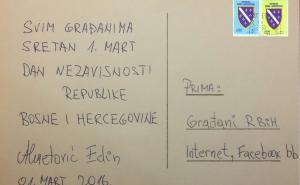 SVIM GRAĐANIMA
SRETAN 1. MART
DAN NEZAVISNOSTI
REPUBLIKE
BOSNE I HERCEGOVINE
Ahmetović Edin
01. MART 2016
PRIMA:
Građani RBiH
Internet, Facebook bb